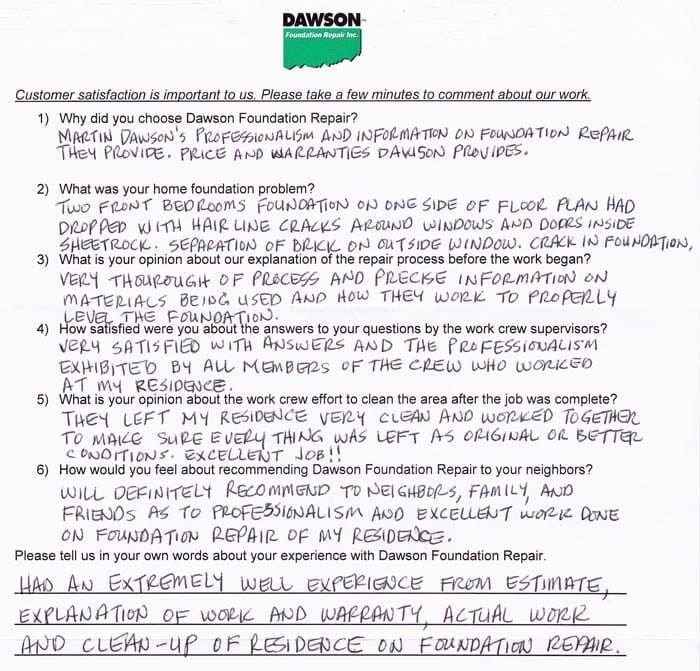 DAWSON
Foundation Repair Inc.
Customer satisfaction is important to us. Please take a few minutes to comment about our work.
1) Why did you choose Dawson Foundation Repair?
MARTIN DAWSON'S PROFESSIONALISM AND INFORMATION ON FOUNDATION REPAIR
THEY PROVIDE. PRICE AND WARRANTIES DAWSON PROVIDES.
2) What was your home foundation problem?
TWO FRONT BEDROOMS FOUNDATION ON ONE SIDE OF FLOOR PLAN HAD
DROPPED WITH HAIR LINE CRACKS AROUND WINDOWS AND DOORS INSIDE
SHEETROCK. SEPARATION OF BRICK ON OUTSIDE WINDOW. CRACK IN FOUNDATION,
3) What is your opinion about our explanation of the repair process before the work began?
VERY THOUROUGH OF PROCESS AND PRECISE INFORMATION ON
MATERIALS BEING USED AND HOW THEY WORK TO PROPERLY
LEVEL THE FOUNDATION.
4) How satisfied were you about the answers to your questions by the work crew supervisors?
VERY SATISFIED WITH ANSWERS AND THE PROFESSIONALISM
EXHIBITED BY ALL MEMBERS OF THE CREW WHO WORKED
AT MY RESIDENCE.
5) What is your opinion about the work crew effort to clean the area after the job was complete?
THEY LEFT MY RESIDENCE VERY CLEAN AND WORKED TOGETHER
TO MAKE SURE EVERY THING WAS LEFT AS ORIGINAL OR BETTER
CONDITIONS. EXCELLENT JOB!!
6) How would you feel about recommending Dawson Foundation Repair to your neighbors?
WILL DEFINITELY RECOMMEND TO NEIGHBORS, FAMILY, AND
FRIENDS AS TO PROFESSIONALISM AND EXCELLENT WORK DONE
ON FOUNDATION REPAIR OF MY RESIDENCE.
Please tell us in your own words about your experience with Dawson Foundation Repair.
HAD AN EXTREMELY WELL EXPERIENCE FROM ESTIMATE,
EXPLANATION OF WORK AND WARRANTY, ACTUAL WORK
AND CLEAN-UP OF RESIDENCE ON FOUNDATION REPAIR.